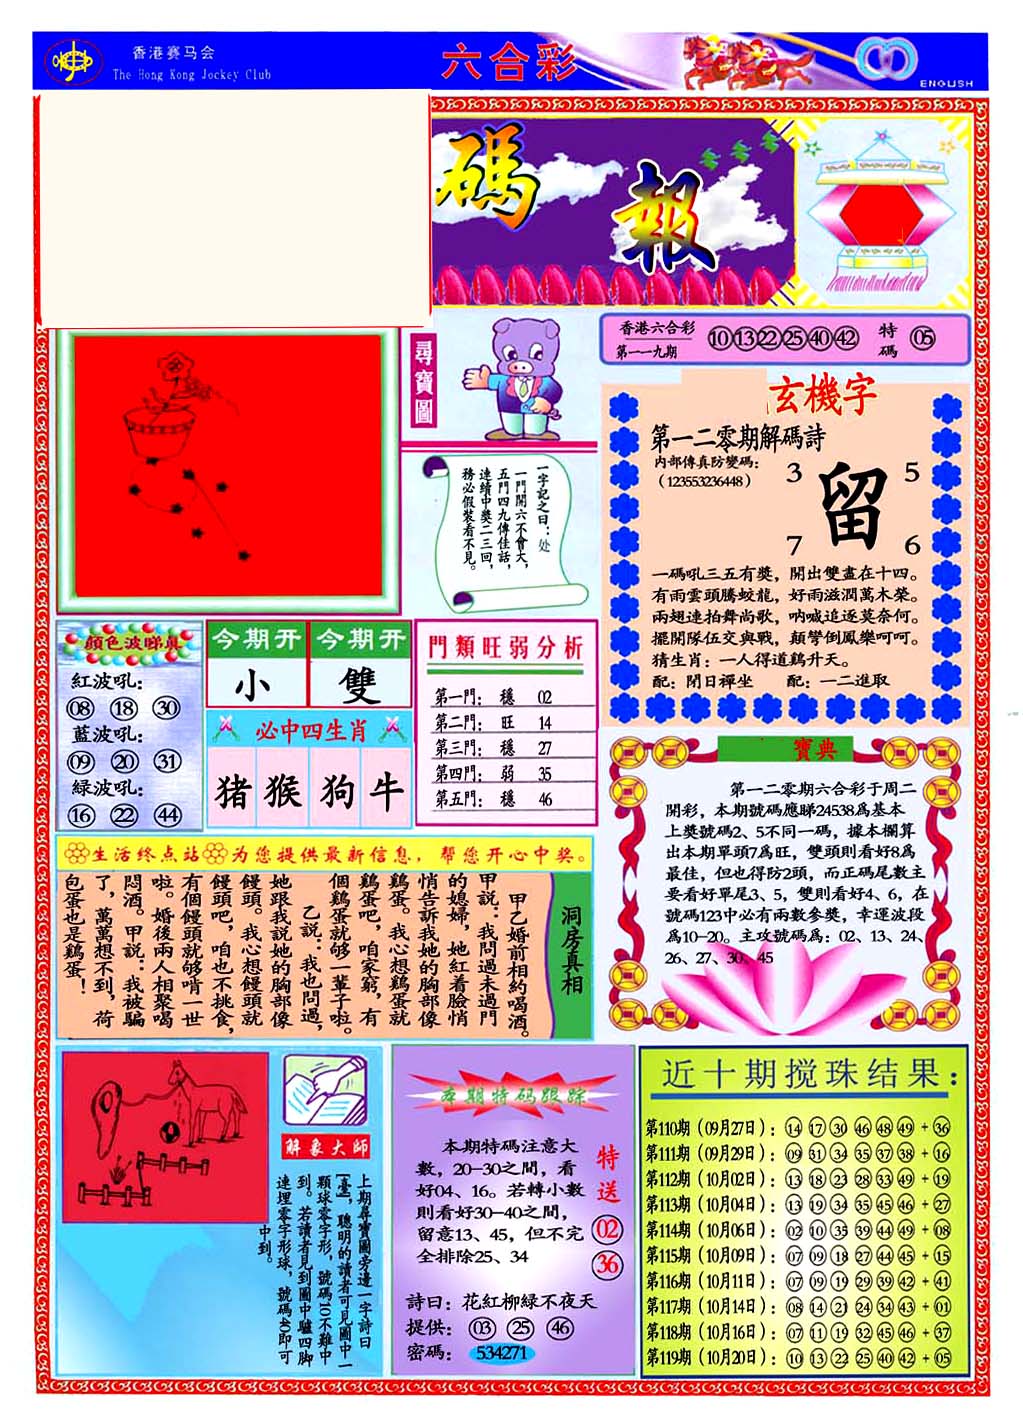 香港赛马会
The Hong Kong Jockey Club
六合彩
ENGLISH
碼報
尋寶圖
香港六合彩
第一一九期
10 13 22 25 40 42
特碼
05
玄機字
第一二零期解碼詩
内部傳真防變碼:
(123553236448)
3
5
留
7
6
一碼吼三五有獎, 開出雙盡在十四。
有雨雲頭騰蛟龍, 好雨滋潤萬木榮。
兩翅連拍舞尚歌, 吶喊追逐莫奈何。
擺開隊伍交與戰, 顛彎倒鳳樂呵呵。
猜生肖: 一人得道鷄升天。
配: 閉日禪坐
配: 一二進取
一字記之曰: 处
一門開六不會大,
五門四九傳佳話,
連續中獎二三回,
務必假裝看不見。
顔色波睇真
紅波吼:
08 18 30
藍波吼:
09 20 31
緑波吼:
16 22 44
今期开
小
今期开
雙
必中四生肖
猪 猴 狗 牛
門類旺弱分析
第一門: 穩 02
第二門: 旺 14
第三門: 穩 27
第四門: 弱 35
第五門: 穩 46
寶典
第一二零期六合彩于周二
開彩, 本期號碼應睇24538爲基本
上獎號碼2、5不同一碼, 據本欄算
出本期單頭7爲旺, 雙頭則看好8爲
最佳, 但也得防2頭, 而正碼尾數主
要看好單尾3、5, 雙則看好4、6, 在
號碼123中必有兩數參獎, 幸運波段
爲10-20。主攻號碼爲: 02、13、24、
26、27、30、45
生活终点站 为您提供最新信息, 帮您开心中奖。
洞房真相
甲乙婚前相約喝酒。
甲説: 我問過未過門
的媳婦, 她紅着臉悄
悄告訴我她的胸部像
鷄蛋。我心想鷄蛋就
鷄蛋吧, 咱家窮, 有
個鷄蛋就够一輩子啦。
乙説: 我也問過,
她跟我説她的胸部像
饅頭。我心想饅頭就
饅頭吧, 咱也不挑食,
有個饅頭就够啃一世
啦。婚後兩人相聚喝
悶酒。甲説: 我被騙
了, 萬萬想不到, 荷
包蛋也是鷄蛋!
解象大師
上期尋寶圖旁邊一字詩曰
聰明的讀者可見圖中一
顆球零字形, 號碼10不難中
到。若讀者見到圖中驢四脚
連埋零字形球, 號碼40即可
中到。
本期特码跟踪
本期特碼注意大
數, 20-30之間, 看
好04、16。若轉小數
則看好30-40之間,
留意13、45, 但不完
全排除25、34
特送
02
36
詩曰: 花紅柳緑不夜天
提供: 03 25 46
密碼: 534271
近十期搅珠结果:
第110期(09月27日): 14 17 30 46 48 49 + 36
第111期(09月29日): 09 31 34 35 37 38 + 16
第112期(10月02日): 13 18 23 28 33 49 + 19
第113期(10月04日): 13 19 34 35 45 46 + 27
第114期(10月06日): 02 10 35 39 44 49 + 08
第115期(10月09日): 07 09 18 27 44 45 + 15
第116期(10月11日): 07 09 19 29 39 42 + 41
第117期(10月14日): 08 14 21 24 34 43 + 01
第118期(10月16日): 07 11 19 32 45 46 + 37
第119期(10月20日): 10 13 22 25 40 42 + 05